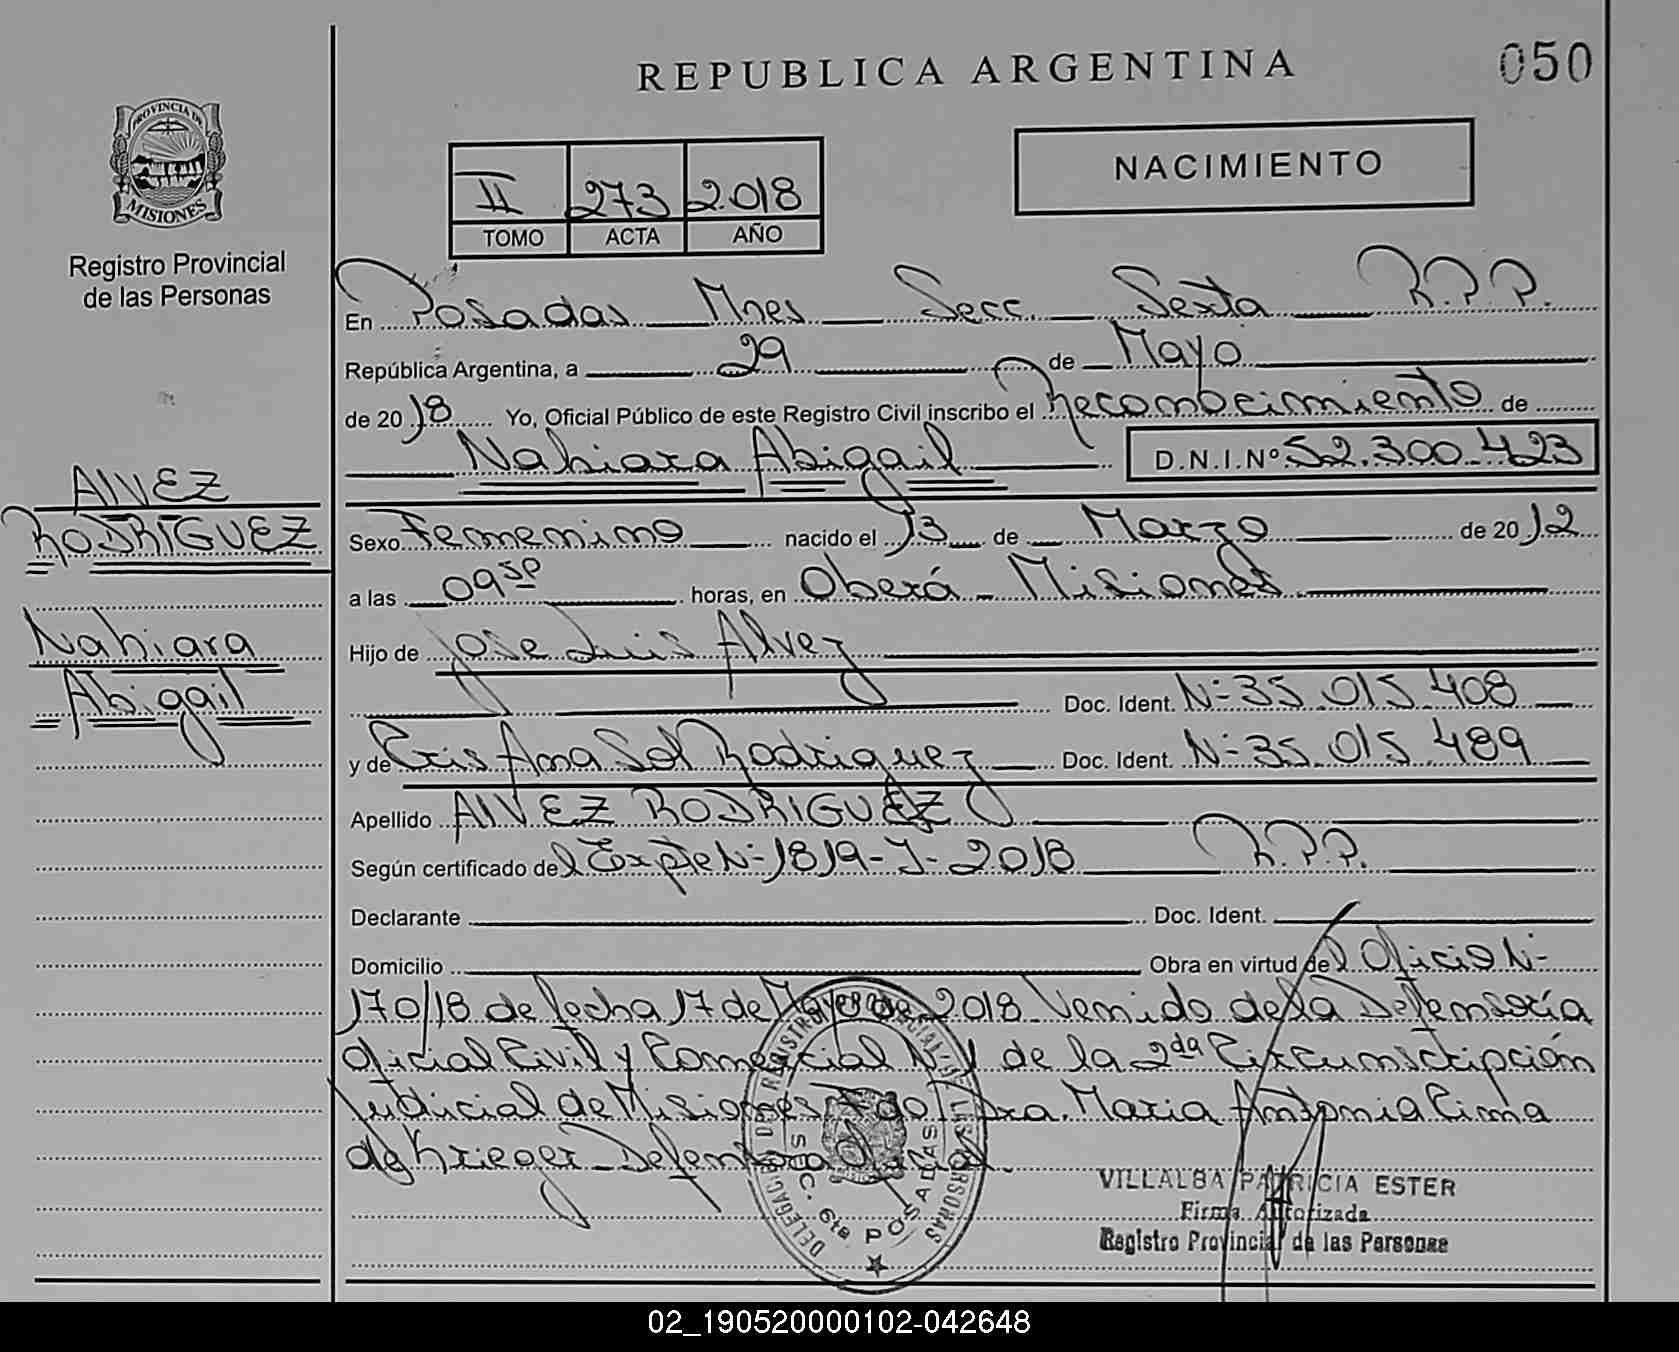 REPUBLICA ARGENTINA
050
PROVINCIA DE
MISIONES
Registro Provincial
de las Personas
II 273 2.018
TOMO ACTA AÑO
NACIMIENTO
En Posadas Mnes Secc. Sexta R.P.P.
República Argentina, a 29 de Mayo
de 2018 Yo, Oficial Público de este Registro Civil inscribo el Reconocimiento de
Nahiara Abigail D.N.I.Nº 52.300.423
ALVEZ
RODRIGUEZ
Nahiara
Abigail
Sexo Femenino nacido el 13 de Marzo de 2012
a las 09 50 horas, en Oberá - Misiones
Hijo de Jose Luis Alvez
Doc. Ident. Nº 35.015.408
y de Cris Ana Sol Rodriguez Doc. Ident. Nº 35.015.489
Apellido ALVEZ RODRIGUEZ
Según certificado del Expte Nº 1819-J-2018 R.P.P.
Declarante Doc. Ident.
Domicilio Obra en virtud del Oficio Nº
170/18 de fecha 17 de Mayo de 2.018 Venido de la Defensoría
Oficial Civil y Comercial Nº 1 de la 2da Circunscripción
Judicial de Misiones Fdo. Dra. Maria Antonia Cima
de Krieger - Defensora Oficial.
DELEGACION DE REGISTRO PROVINCIAL DE LAS PERSONAS
SEC. 6ta POSADAS
VILLALBA PATRICIA ESTER
Firma Autorizada
Registro Provincial de las Personas
02_190520000102-042648